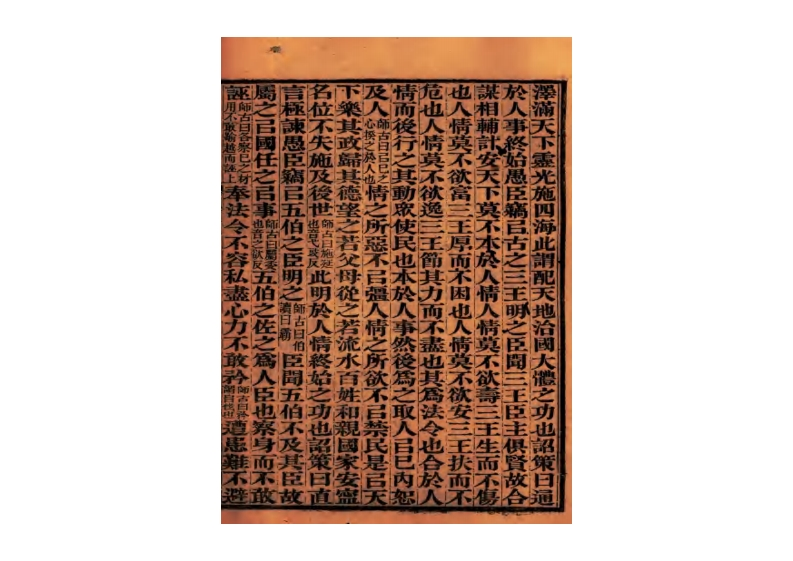 澤滿天下靈光施四海此謂配天地治國大體之功也詔策曰通
於人事終始愚臣竊㠯古之三王明之臣聞三王臣主俱賢故合
謀相輔計安天下莫不本於人情人情莫不欲壽三王生而不傷
也人情莫不欲富三王厚而不困也人情莫不欲安三王扶而不
危也人情莫不欲逸三王節其力而不盡也其爲法令也合於人
情而後行之其動眾使民也本於人事然後爲之取人㠯己內恕
及人師古曰㠯己之心揆之於人也情之所惡不㠯彊人情之所欲不㠯禁民是㠯天
下樂其政歸其德望之若父母從之若流水百姓和親國家安寧
名位不失施及後世師古曰施延也音弋豉反此明於人情終始之功也詔策曰直
言極諫愚臣竊㠯五伯之臣明之師古曰伯讀曰霸臣聞五伯不及其臣故
屬之㠯國任之㠯事師古曰屬委也音之欲反五伯之佐之爲人臣也察身而不敢
誣師古曰各察己之材用不敢踰越而誣上奉法令不容私盡心力不敢矜師古曰矜謂自伐也遭患難不避